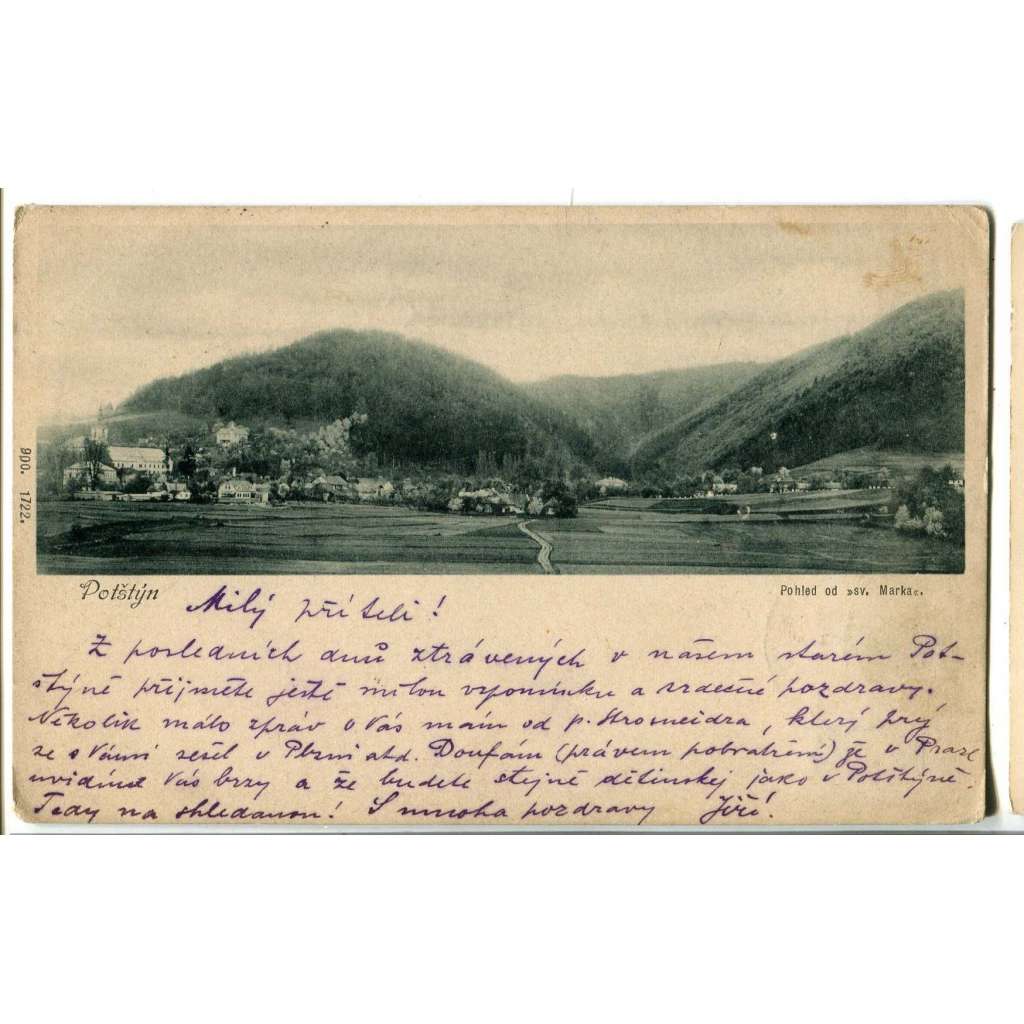 900. 1722.
Potštýn
Pohled od »sv. Marka«.
Milý příteli!
Z posledních dnů ztrávených v našem starém Pot-
štýně přijměte ještě milou vzpomínku a srdečné pozdravy.
Několik málo zpráv o Vás mám od p. Stromeidra, který prý
se s Vámi sešel v Plzni atd. Doufám (právem pobratření) že v Praze
uvidíme Vás brzy a že budete stejně dětinskej jako v Potštýně.
Tedy na shledanou! S mnoha pozdravy Jiří.